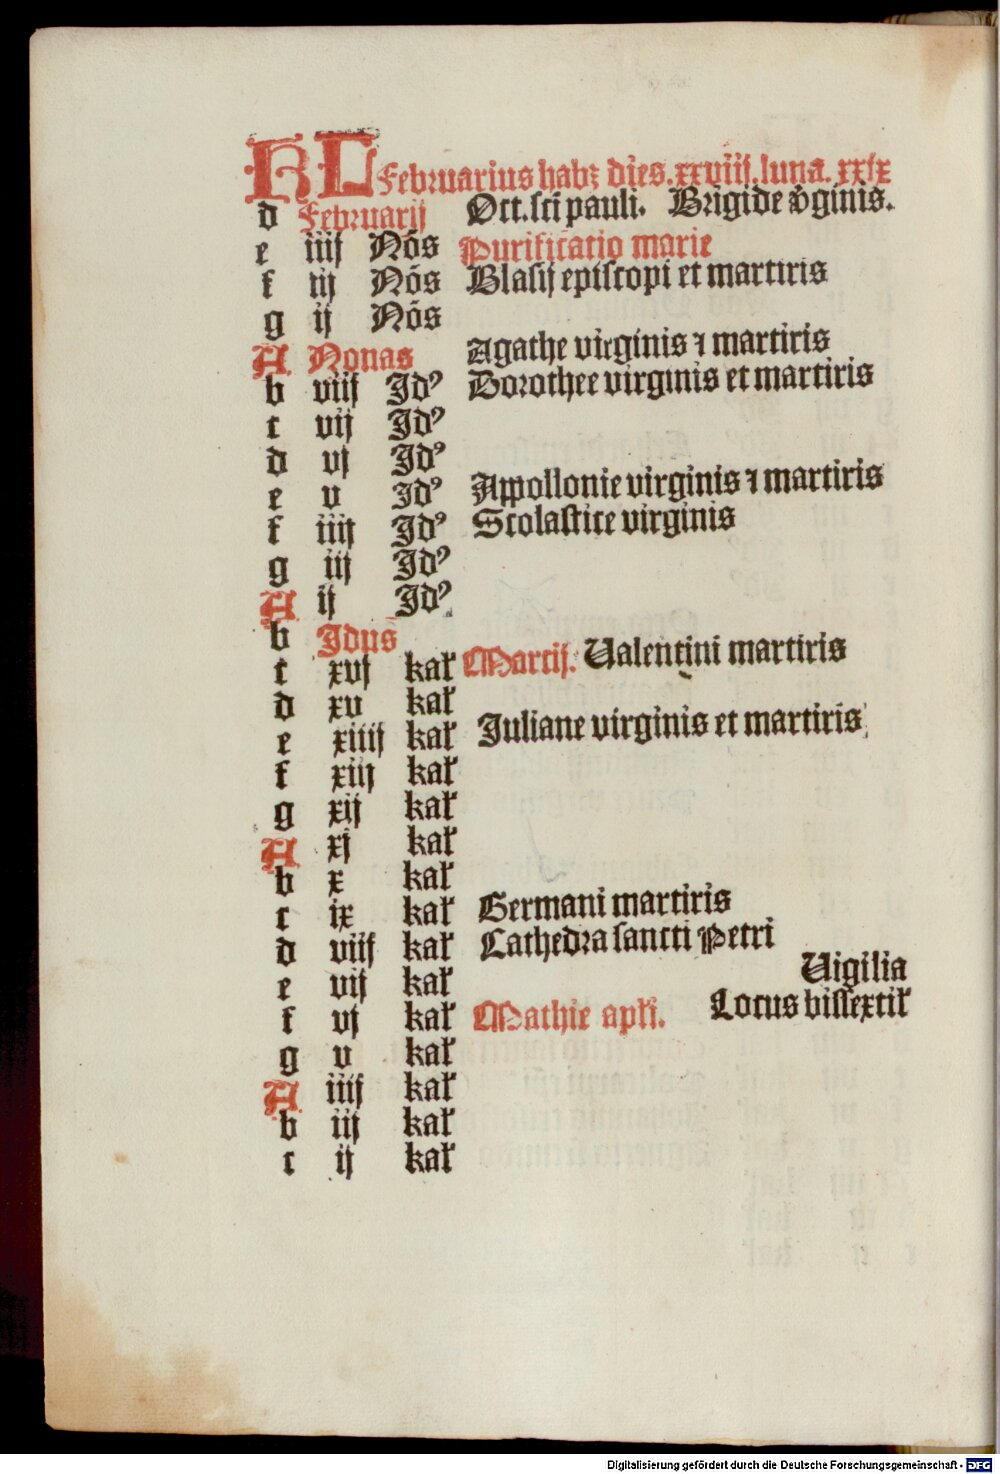 KL Februarius habꝫ dies.xxviij.luna.xxix
d Februarij Oct.scī pauli. Brigide v̄ginis.
e iiij Nōs Purificatio marie
f iij Nōs Blasij episcopi et martiris
g ij Nōs
A Nonas Agathe virginis ⁊ martiris
b viij Idꝰ Dorothee virginis et martiris
c vij Idꝰ
d vj Idꝰ
e v Idꝰ Appollonie virginis ⁊ martiris
f iiij Idꝰ Scolastice virginis
g iij Idꝰ
A ij Idꝰ
b Idus
c xvj kał Martij. Valentini martiris
d xv kał
e xiiij kał Juliane virginis et martiris
f xiij kał
g xij kał
A xj kał
b x kał
c ix kał Germani martiris
d viij kał Cathedra sancti Petri
e vij kał Vigilia
f vj kał Mathie apłi. Locus bissextił
g v kał
A iiij kał
b iij kał
c ij kał
Digitalisierung gefördert durch die Deutsche Forschungsgemeinschaft - DFG